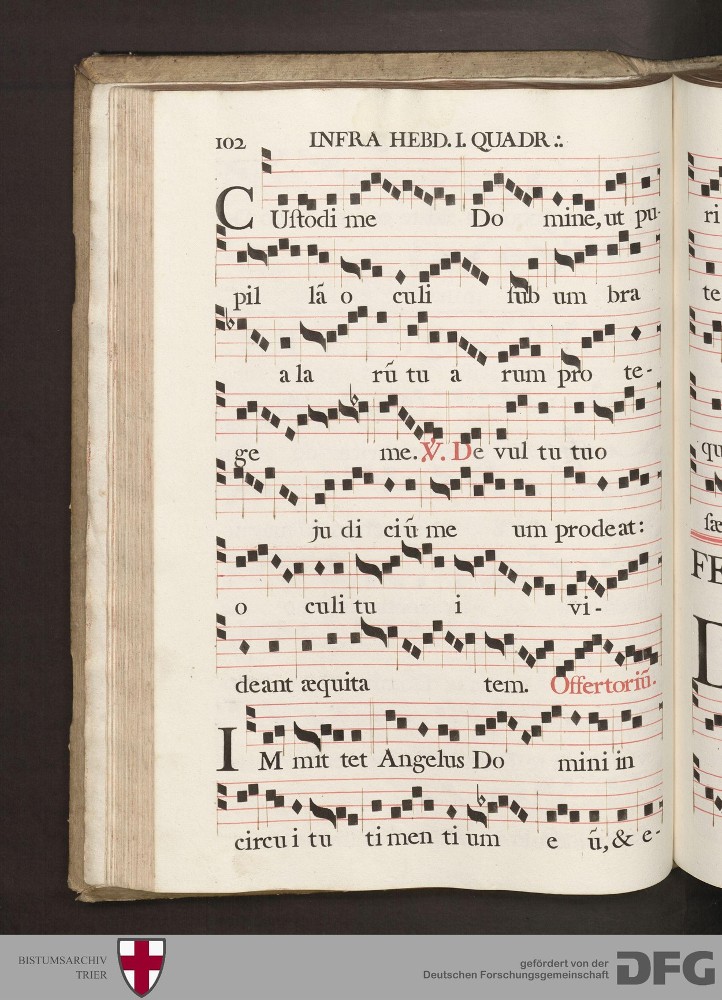 102 INFRA HEBD. I. QUADR.:
CUſtodi me Do mine, ut pu-
pil lã o culi ſub um bra
a la rũ tu a rum pro te-
ge me. ℣. De vul tu tuo
ju di ciũ me um prodeat:
o culi tu i vi-
deant æquita tem. Offertoriũ.
IM mit tet Angelus Do mini in
circu i tu ti men ti um e ũ, & e-
ri
te
qu
ſæ
FE
BISTUMSARCHIV
TRIER
gefördert von der
Deutschen Forschungsgemeinschaft
DFG